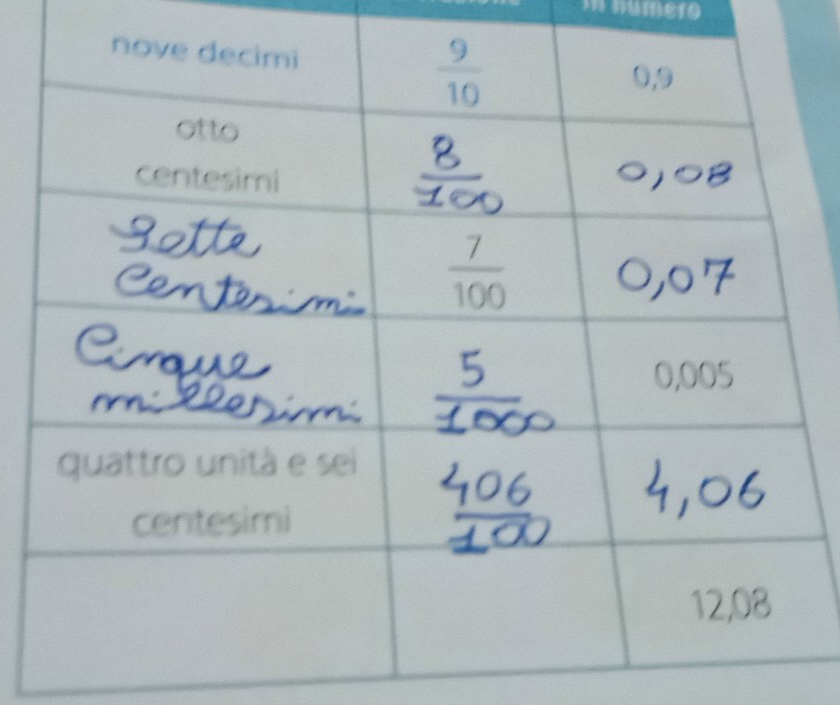 in numero
nove decimi
9
10
0,9
otto
centesimi
8
100
0,08
Sette
Centesimi
7
100
0,07
Cinque
millesimi
5
1000
0,005
quattro unità e sei
centesimi
406
100
4,06
12,08